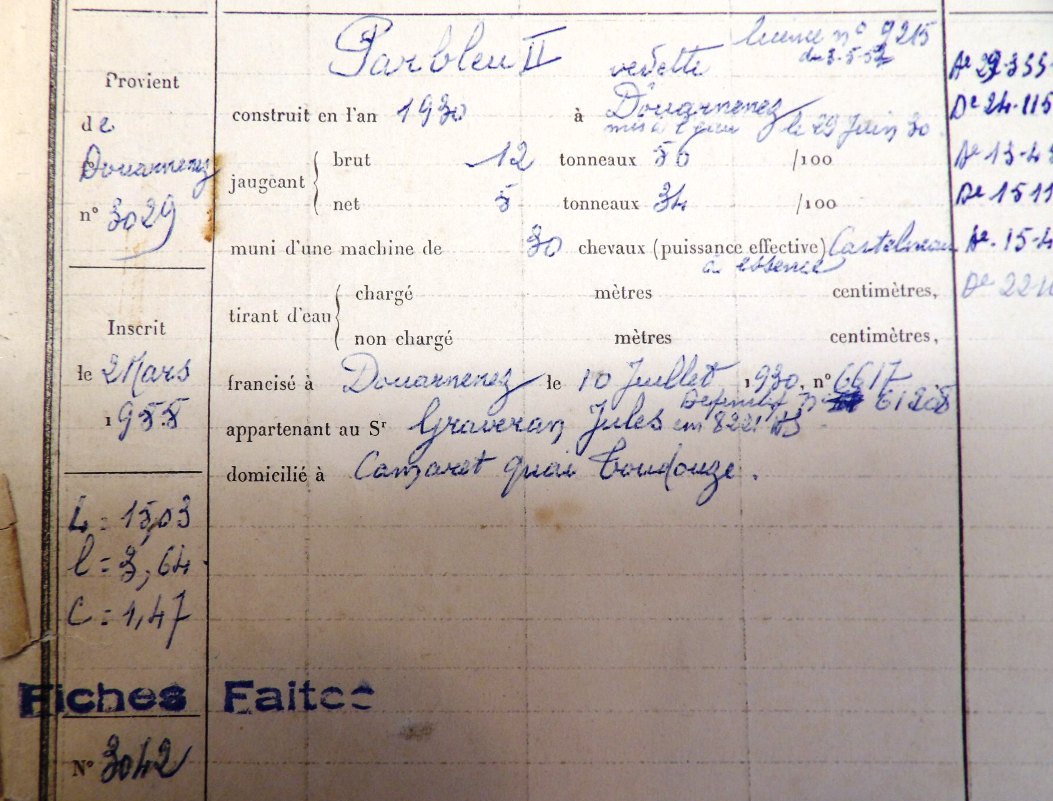 Provient
de
Douarnenez
n° 3029
Inscrit
le 2 Mars
1955
L = 15,03
l = 3,64
C = 1,47
Fiches Faites
N° 3042
Parbleu II
licence n° 9215
vedette
construit en l'an 1930 à Douarnenez
mis à l'eau le 29 Juin 30
jaugeant { brut 12 tonneaux 50 /100
net 5 tonneaux 34 /100
muni d'une machine de 30 chevaux (puissance effective) Castelneau
à essence
tirant d'eau { chargé mètres centimètres,
non chargé mètres centimètres,
francisé à Douarnenez le 10 Juillet 1930, n° 6617
appartenant au Sr Graveran Jules
domicilié à Camaret quai Toudouze.